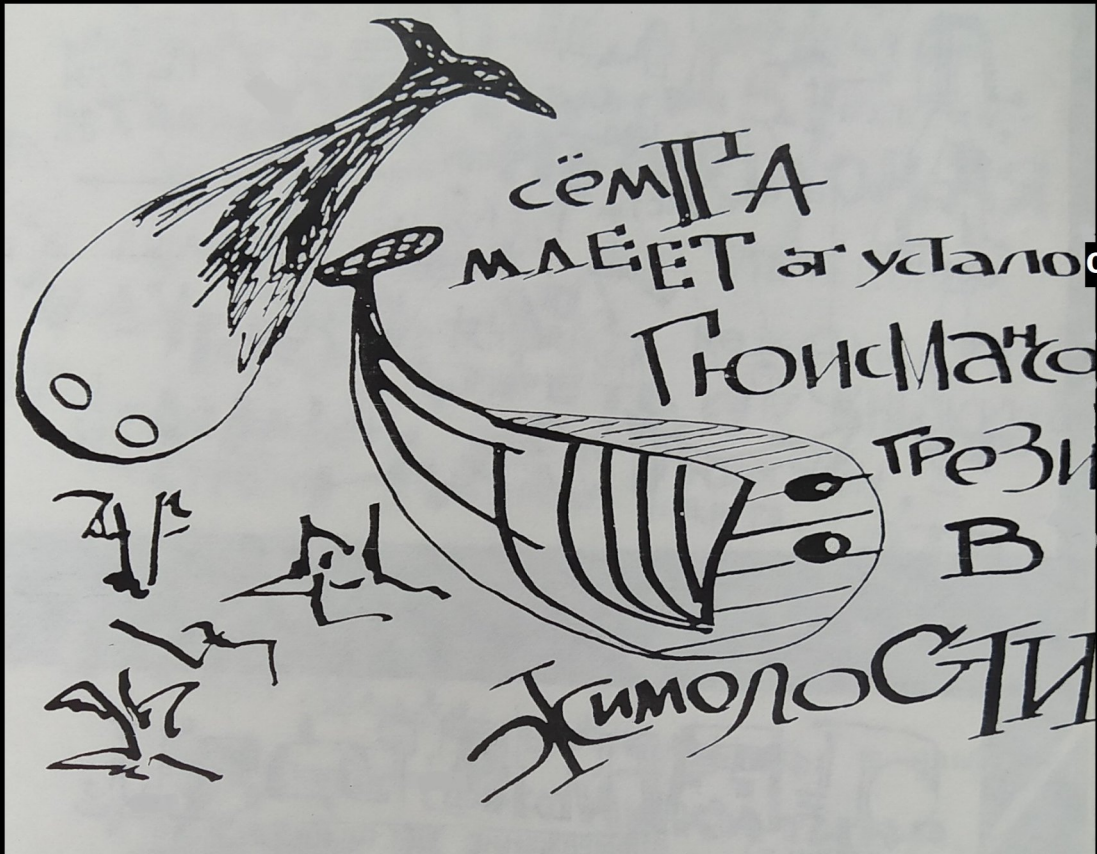 сёмГА
млЕЕТ от усталос
Гюисмансо
грези
В
жимолоСТИ